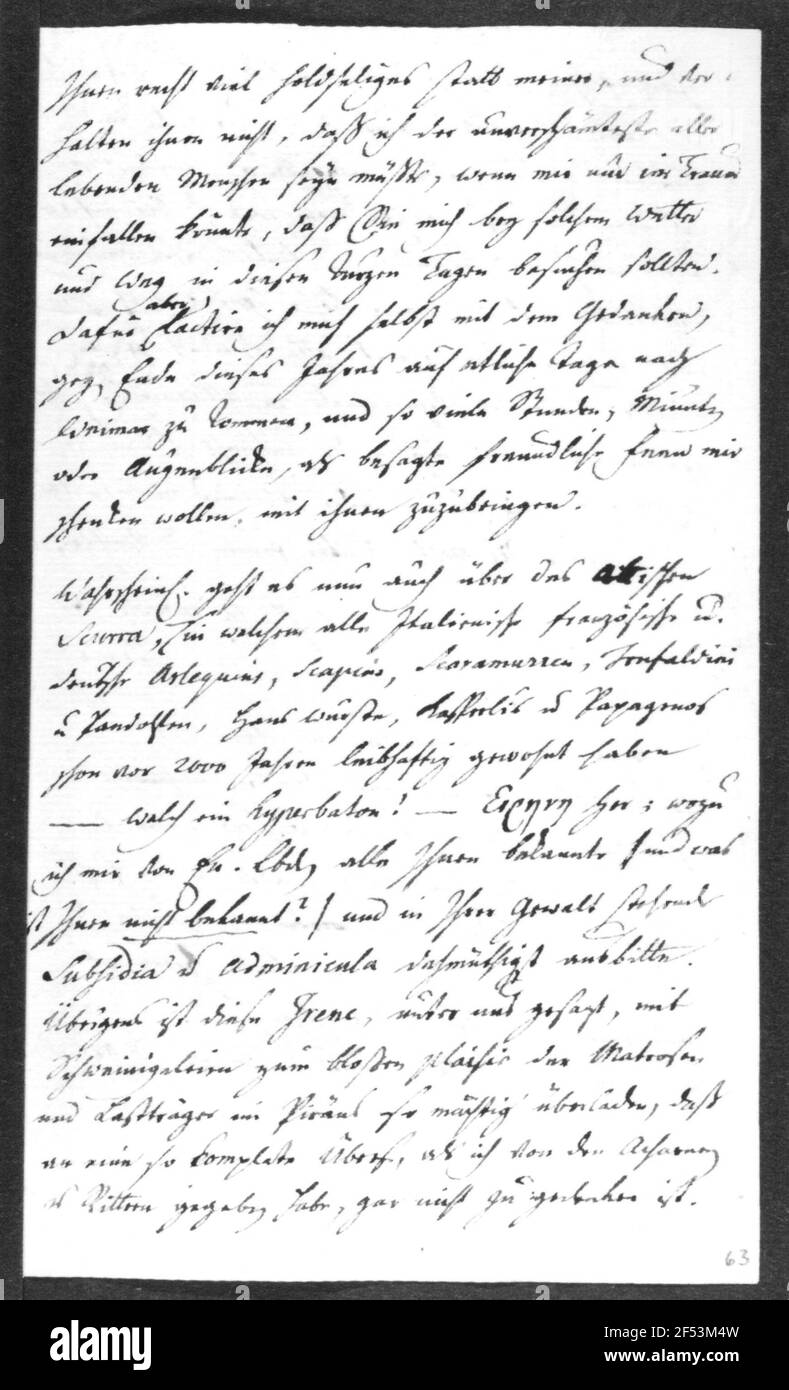 Ihnen recht viel holdseliges statt meiner, und ver-
halten ihnen nicht, daß ich der unverschämteste aller
lebenden Menschen seyn müßte, wenn mir nur im Traum
einfallen könnte, daß Sie mich bey solchem Wetter
und Weg in diesen kurzen Tagen besuchen sollten.
aber
Dafür lactire ich mich selbst mit dem Gedanken,
geg. Ende dieses Jahres auf etliche Tage nach
Weimar zu kommen, und so viele Stunden, Minuten
oder Augenblicke, als besagte freundliche Feen mir
schenken wollen, mit ihnen zuzubringen.
Wahrscheinl. geht es nun auch über des attischen
Scurra, in welchem alle Italienische französische u.
deutsche Arlequins, Scapins, Scaramuzzen, Trufaldini
u Pandolfen, Hans wurste, Kasperls u Papagenos
schon vor 2000 Jahren leibhaftig gewohnt haben
— welch ein Hyperbaton! — Ειρηνη her; wozu
ich mir von Ew. Lbdn alle Ihnen bekannte / und was
ist Ihnen nicht bekannt? / und in Ihrer Gewalt stehende
Subsidia u Adminicula demüthigst ausbitte.
Übrigens ist diese Irene, unter uns gesagt, mit
Schweinigeleien zum bloßen plaisir der Matrosen
und Lastträger im Piräus so mächtig überladen, daß
an eine so komplete Übers. als ich von den Acharnern
u Rittern gegeben habe, gar nicht zu gedenken ist.
63
alamy
Image ID: 2F53M4W
www.alamy.com